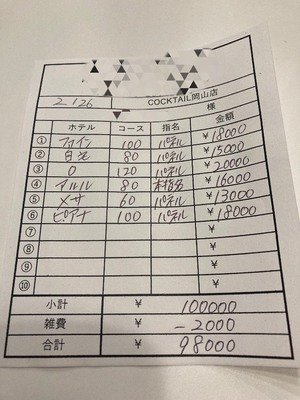 2/26 COCKTAIL岡山店
様
ホテル コース 指名 金額
① ファイン 100 パネル ¥18000
② 80 パネル ¥15000
③ O 120 パネル ¥20000
④ アルル 80 本指名 ¥16000
⑤ メサ 60 パネル ¥13000
⑥ ピアナ 100 パネル ¥18000
⑦ ¥
⑧ ¥
⑨ ¥
⑩ ¥
小計 ¥ 100000
雑費 ¥ -2000
合計 ¥ 98000